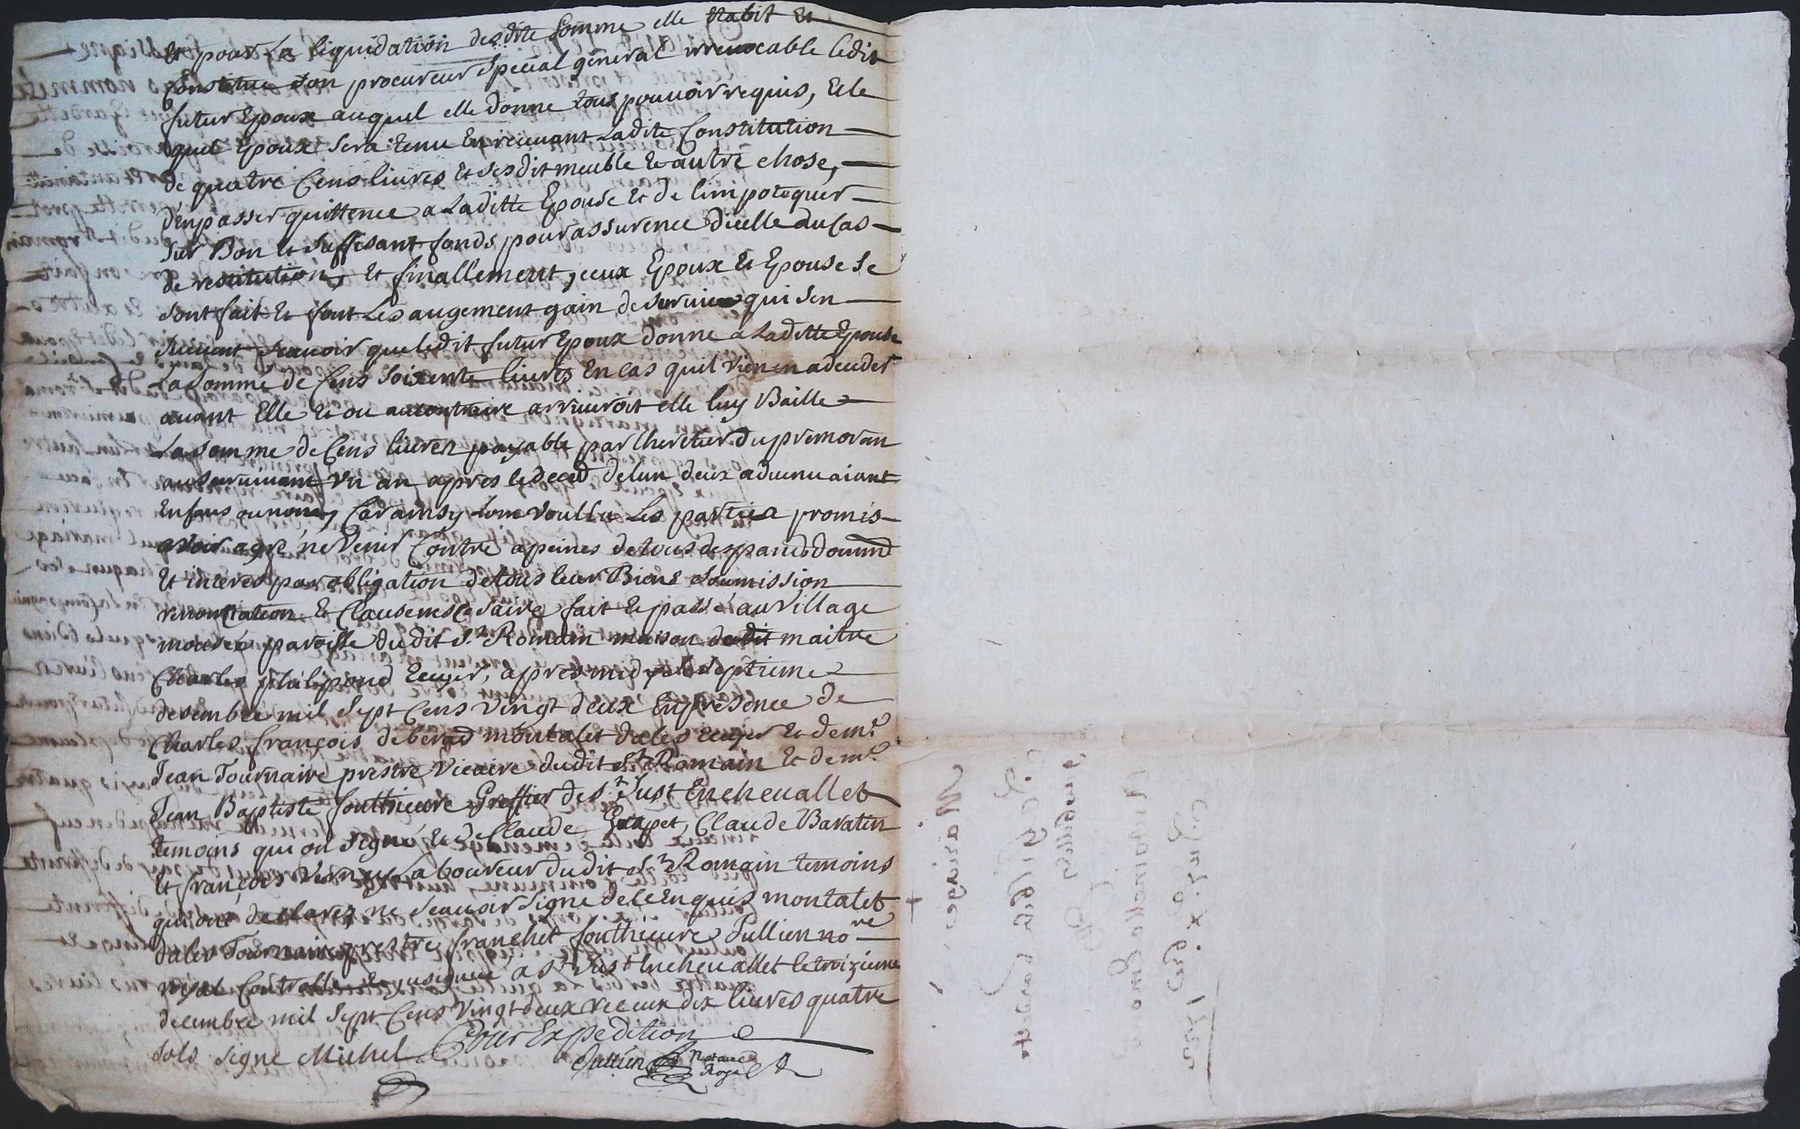 Et pour La liquidation desdite somme elle Etabit Et
Constitue son procureur Special general irrevocable ledit
futur Epoux auquel elle donne tous pouvoir requis, Ele
quel Epoux Sera tenu En recevant Ladite Constitution
de quatre Cens livres Et sesdit meuble Et autre chose,
d'en passer quittence a Laditte Epouse Et de limpotequer
sur Bon Et suffisant fonds pour assurence dicelle au Cas
de restitution, Et finallement, iceux Epoux Et Epouse se
sont fait Et font Les augement gain de survie qui sen
suivent scavoir que ledit futur Epoux donne a Laditte Epouse
La somme de Cens soixente livres En cas quil vienen a deceder
avant Elle Et ou aucontraire arriveroit elle luy Baille
La somme de Cens livres payable par lheretier du premoran
au survivant un an apres le deced delun deux advenu aiant
Enfans ou non, Car ainsy Lont voullu Les parties promis
avoir agré ne venir Contre a peines de tous despands domm
Et interes par obligation de tous leur Biens soumission
renontiation Et Clause necesaire fait Et passé au village
paroisse dudit St Romain maison dudit maitre
Charles philipond Ecuyer, apres midy le septieme
desembre mil sept Cens vingt deux En presence de
Charles françois de berad montalet dales Ecuyer Et de mr
Jean Tournaire prestre vicaire dudit St Romain Et de mr
Jean Baptiste fonthieure Greffier de St Just En chevallet
temoins qui on signé, Et de Claude Claude Baratin
Et françois Vernay Laboureur dudit St Romain temoins
qui ont declarez ne scavoir signe de ce Enquis montalet
dales Tournaire prestre franchet fonthieure Jullien nore
royal Controllé a St Just En chevallet le troizieme
decembre mil sept Cens vingt deux receux dix livres quatre
sols signe Michel
Pour Expedition
Jullien Notaire
Royal
Mariage